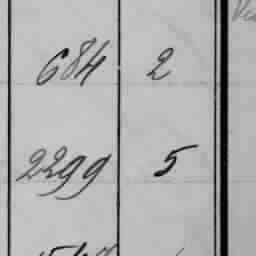 684 2
2299 5